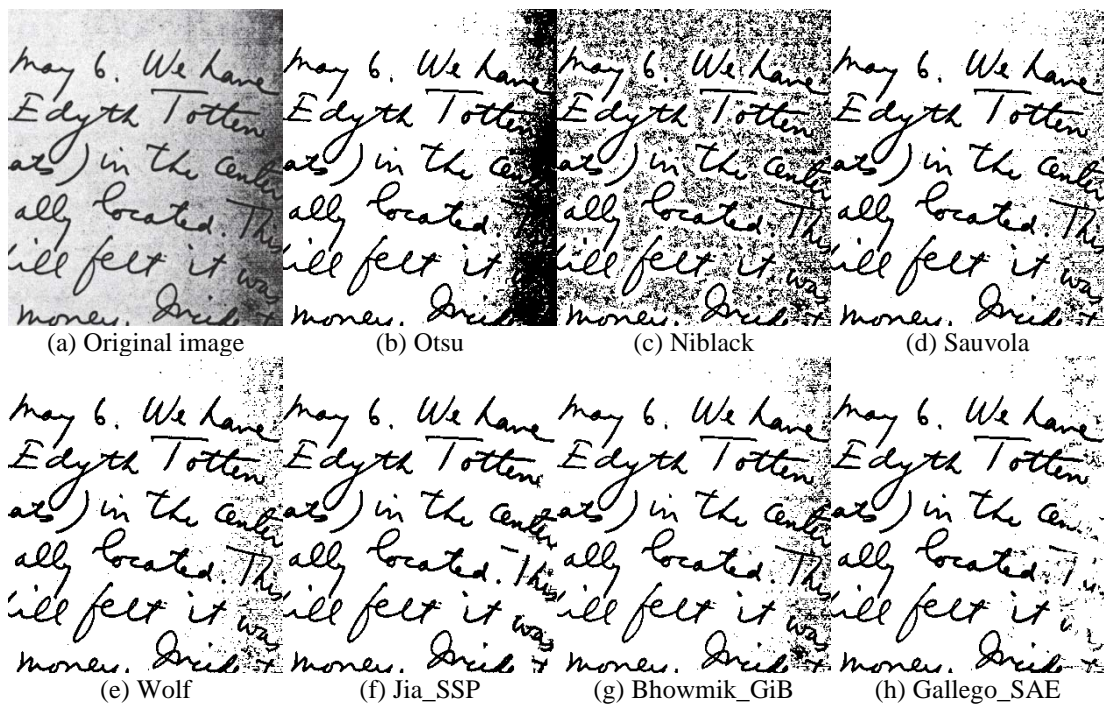 may 6. We have
Edyth Totten
ats) in the center
ally located. This
ill felt it was
money.
(a) Original image
may 6. We have
Edyth Totten
ats) in the cen
ally located.
ill felt it
money.
(b) Otsu
may 6. We have
Edyth Totten
ats) in the center
ally located. This
ill felt it was
money.
(c) Niblack
may 6. We have
Edyth Totten
ats) in the center
ally located. This
ill felt it was
money.
(d) Sauvola
may 6. We have
Edyth Totten
ats) in the center
ally located. This
ill felt it was
money.
(e) Wolf
may 6. We have
Edyth Totten
ats) in the center
ally located. This
ill felt it was
money.
(f) Jia_SSP
may 6. We have
Edyth Totten
ats) in the center
ally located. This
ill felt it was
money.
(g) Bhowmik_GiB
may 6. We have
Edyth Totten
ats) in the cen
ally located.
ill felt it
money.
(h) Gallego_SAE